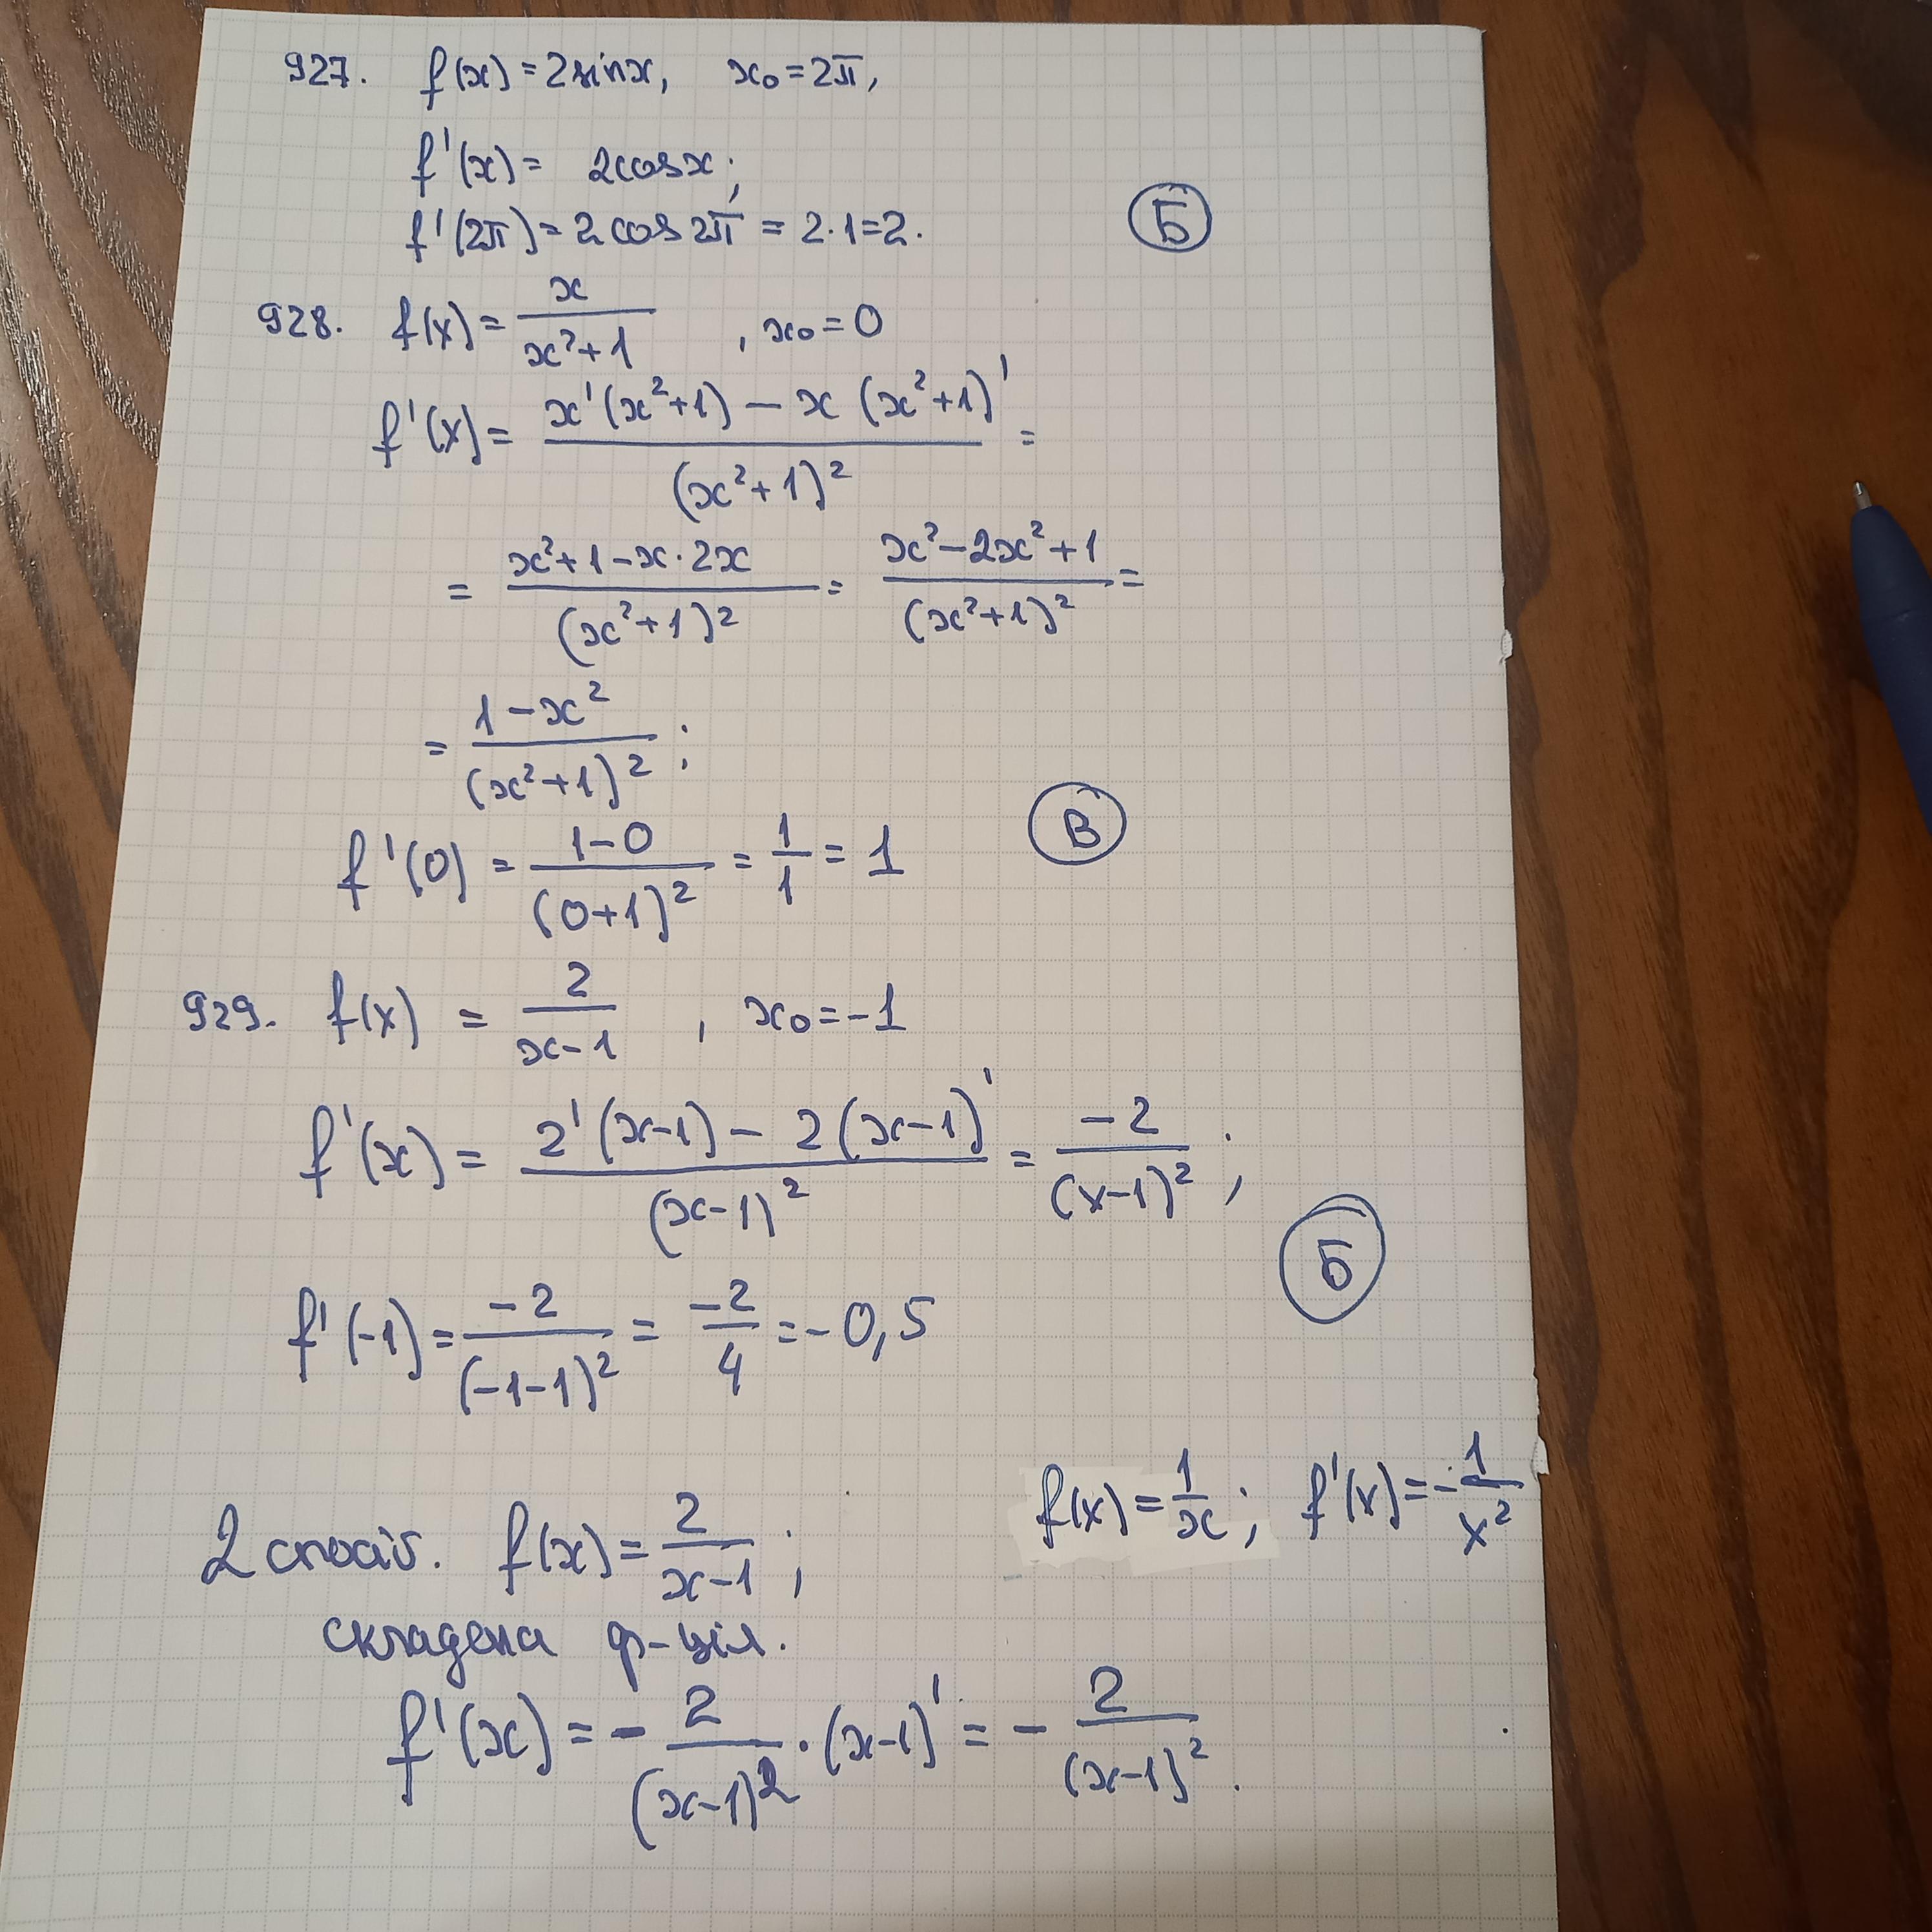 927. f(x) = 2sinx, x₀ = 2π,
f'(x) = 2cosx;
f'(2π) = 2cos2π = 2·1=2.
Б
928. f(x) = x/(x²+1), x₀ = 0
f'(x) = (x'(x²+1) − x(x²+1)')/(x²+1)² =
= (x²+1−x·2x)/(x²+1)² = (x²−2x²+1)/(x²+1)² =
= (1−x²)/(x²+1)²;
В
f'(0) = (1−0)/(0+1)² = 1/1 = 1
929. f(x) = 2/(x−1), x₀ = −1
f'(x) = (2'(x−1) − 2(x−1)')/(x−1)² = −2/(x−1)²;
Б
f'(−1) = −2/(−1−1)² = −2/4 = −0,5
f(x) = 1/x; f'(x) = −1/x²
2 спосіб. f(x) = 2/(x−1);
складена ф-ція.
f'(x) = − 2/(x−1)² · (x−1)' = − 2/(x−1)².